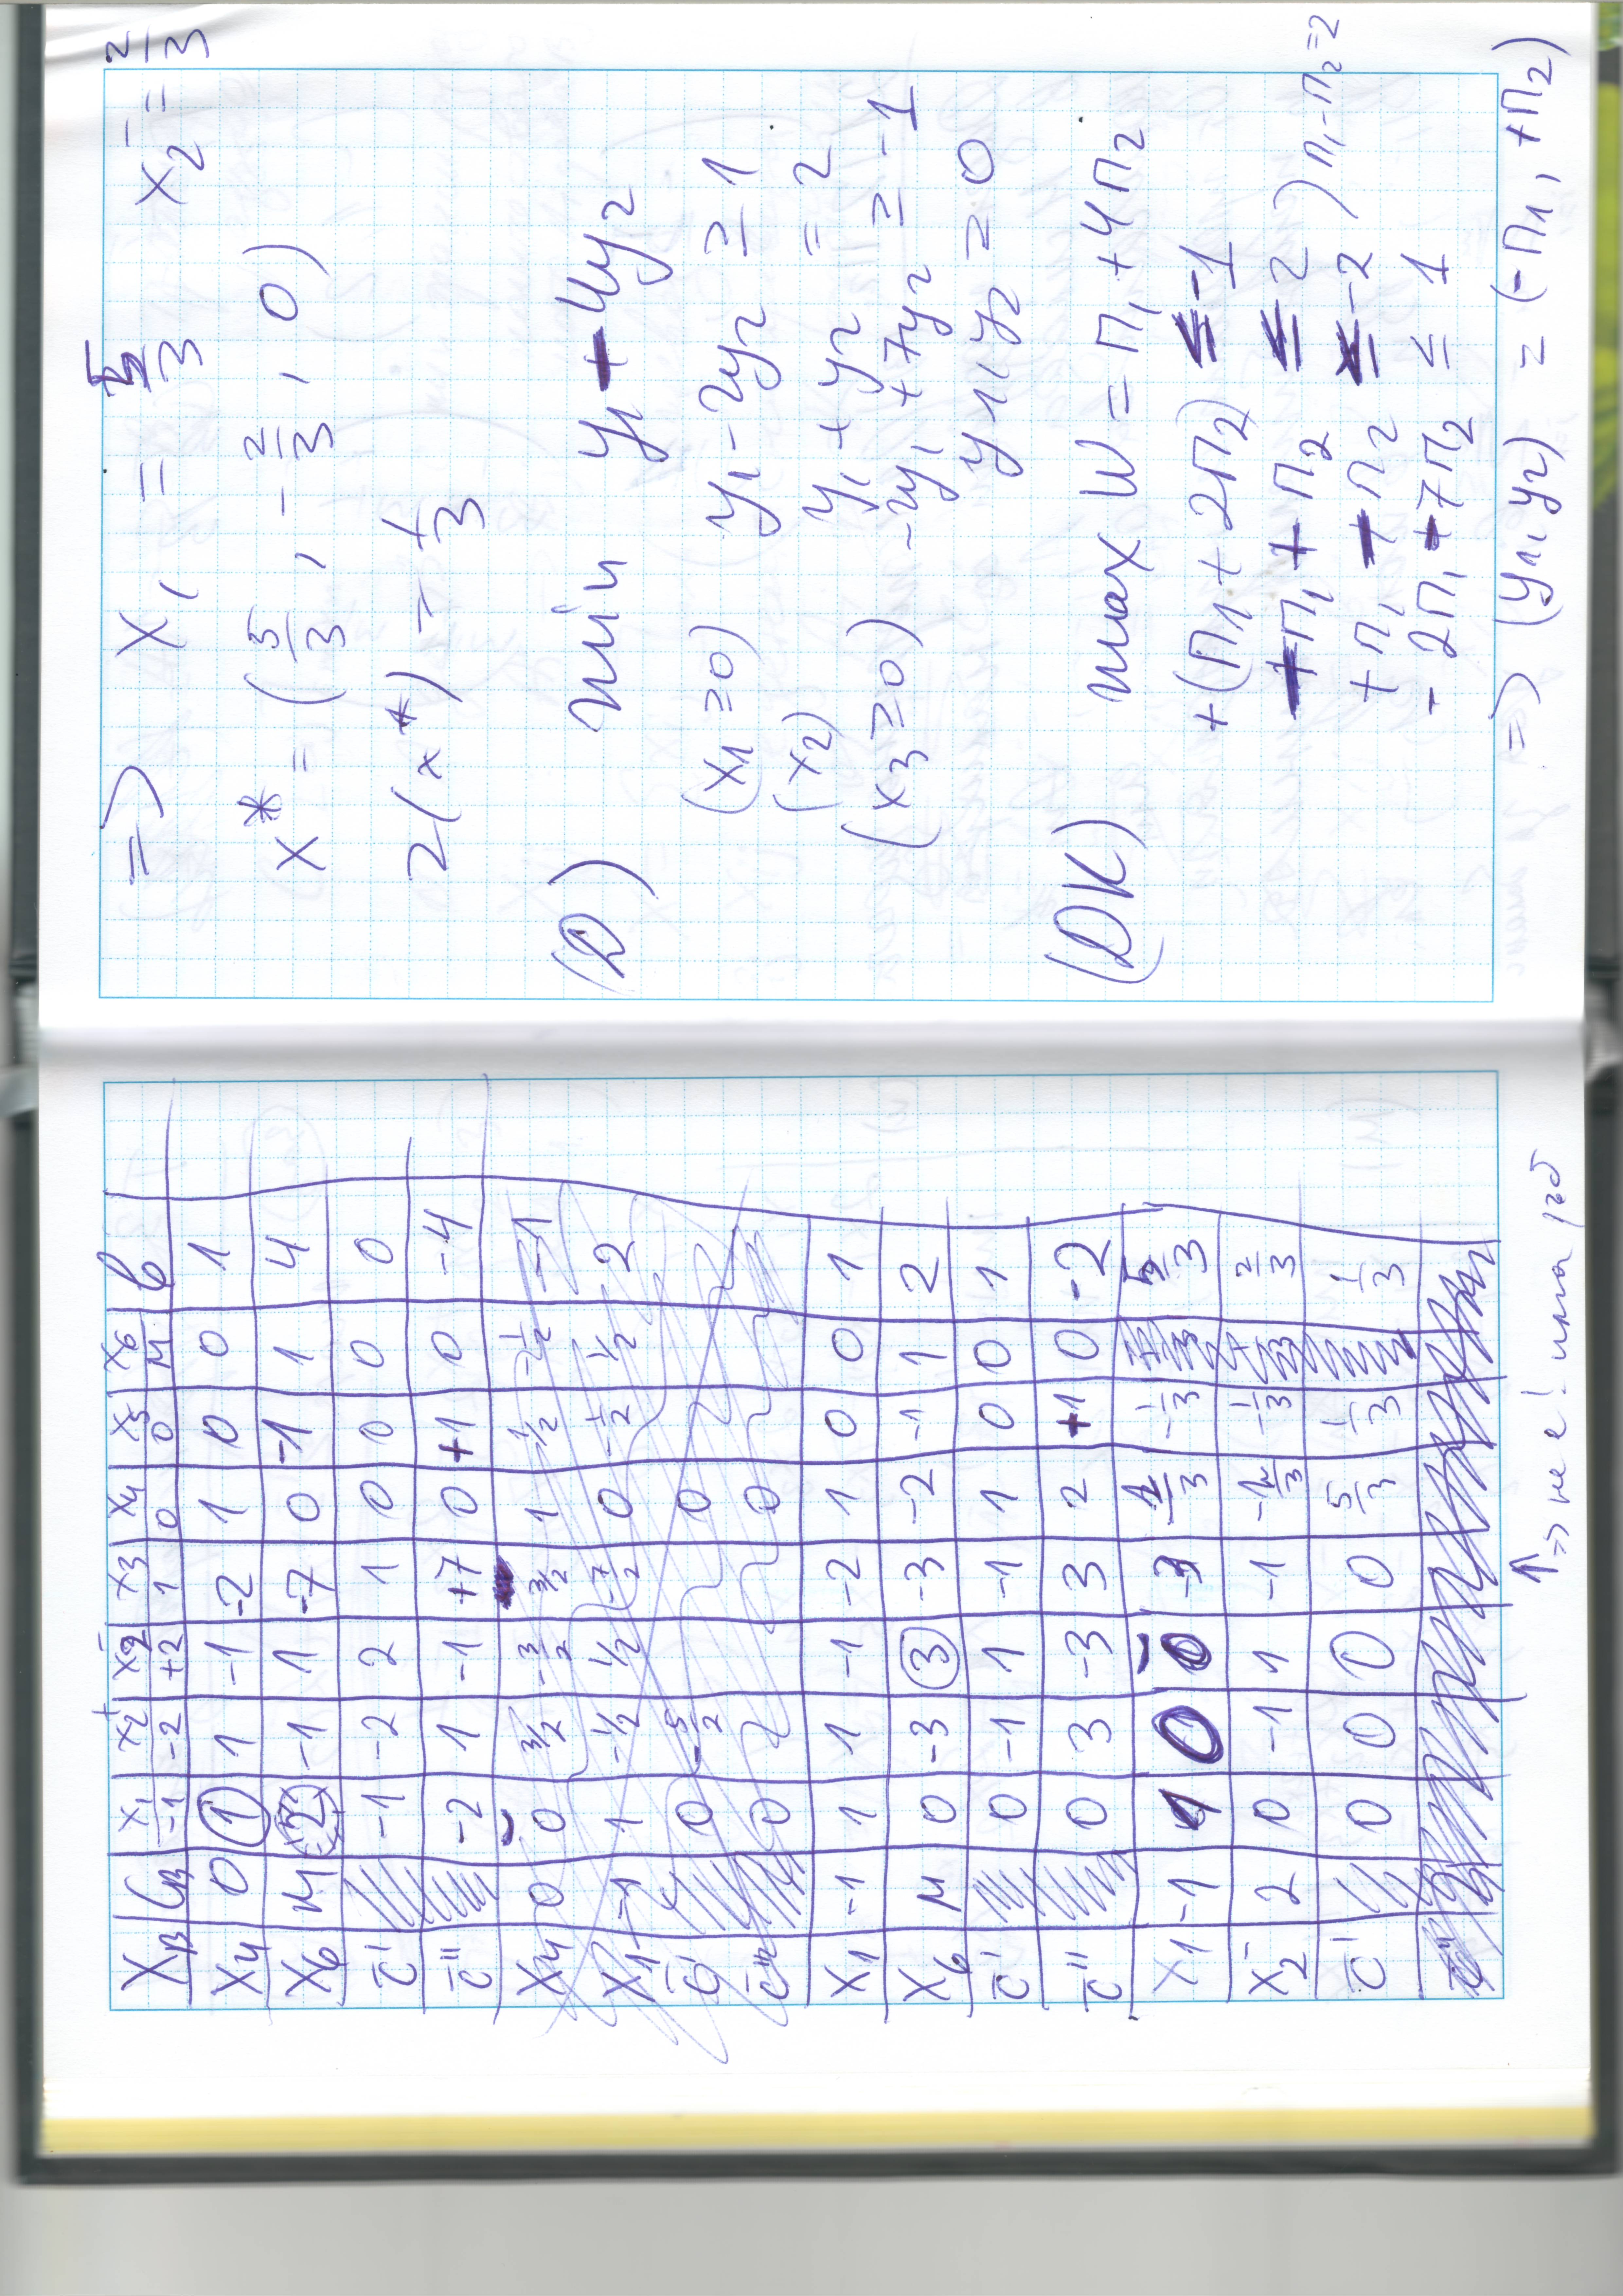 XB | CB | x1 -1 | x2+ -2 | x2- +2 | x3 1 | x4 0 | x5 0 | x6 M | b
x4 | 0 | 1 | 1 | -1 | -2 | 1 | 0 | 0 | 1
x6 | M | 2 | -1 | 1 | -7 | 0 | -1 | 1 | 4
c̄' | | -1 | -2 | 2 | 1 | 0 | 0 | 0 | 0
c̄'' | | -2 | 1 | -1 | +7 | 0 | +1 | 0 | -4
x4 | 0 | 0 | 3/2 | -3/2 | 3/2 | 1 | 1/2 | -1/2 | -1
x1 | -1 | 1 | -1/2 | 1/2 | -7/2 | 0 | -1/2 | 1/2 | 2
c̄' | | 0 | -5/2 | | | 0
c̄'' | | 0 | | | | 0
x1 | -1 | 1 | 1 | -1 | -2 | 1 | 0 | 0 | 1
x6 | M | 0 | -3 | 3 | -3 | -2 | -1 | 1 | 2
c̄' | | 0 | -1 | 1 | -1 | 1 | 0 | 0 | 1
c̄'' | | 0 | 3 | -3 | 3 | 2 | +1 | 0 | -2
x1 | -1 | 1 | 0 | 0 | -3 | 1/3 | -1/3 | | 5/3
x2- | 2 | 0 | -1 | 1 | -1 | -2/3 | -1/3 | | 2/3
c̄' | | 0 | 0 | 0 | 0 | 5/3 | 1/3 | | 1/3
c̄''
↑=> не е! има
=> x1 = 5/3 x2- = 2/3
x* = (5/3, -2/3, 0)
z(x*) = 1/3
(D) min y1 - 4y2
(x1≥0) y1 - 2y2 ≥ 1
(x2) y1 + y2 = 2
(x3≥0) -2y1 + 7y2 ≥ -1
y1, y2 ≥ 0
(DK) max W = π1 + 4π2
+(π1 + 2π2) ≤ -1
+π1 + π2 ≤ 2
+π1 + π2 ≤ -2 ) π1-π2=2
-2π1 + 7π2 ≤ 1
=> (y1, y2) = (-π1, +π2)